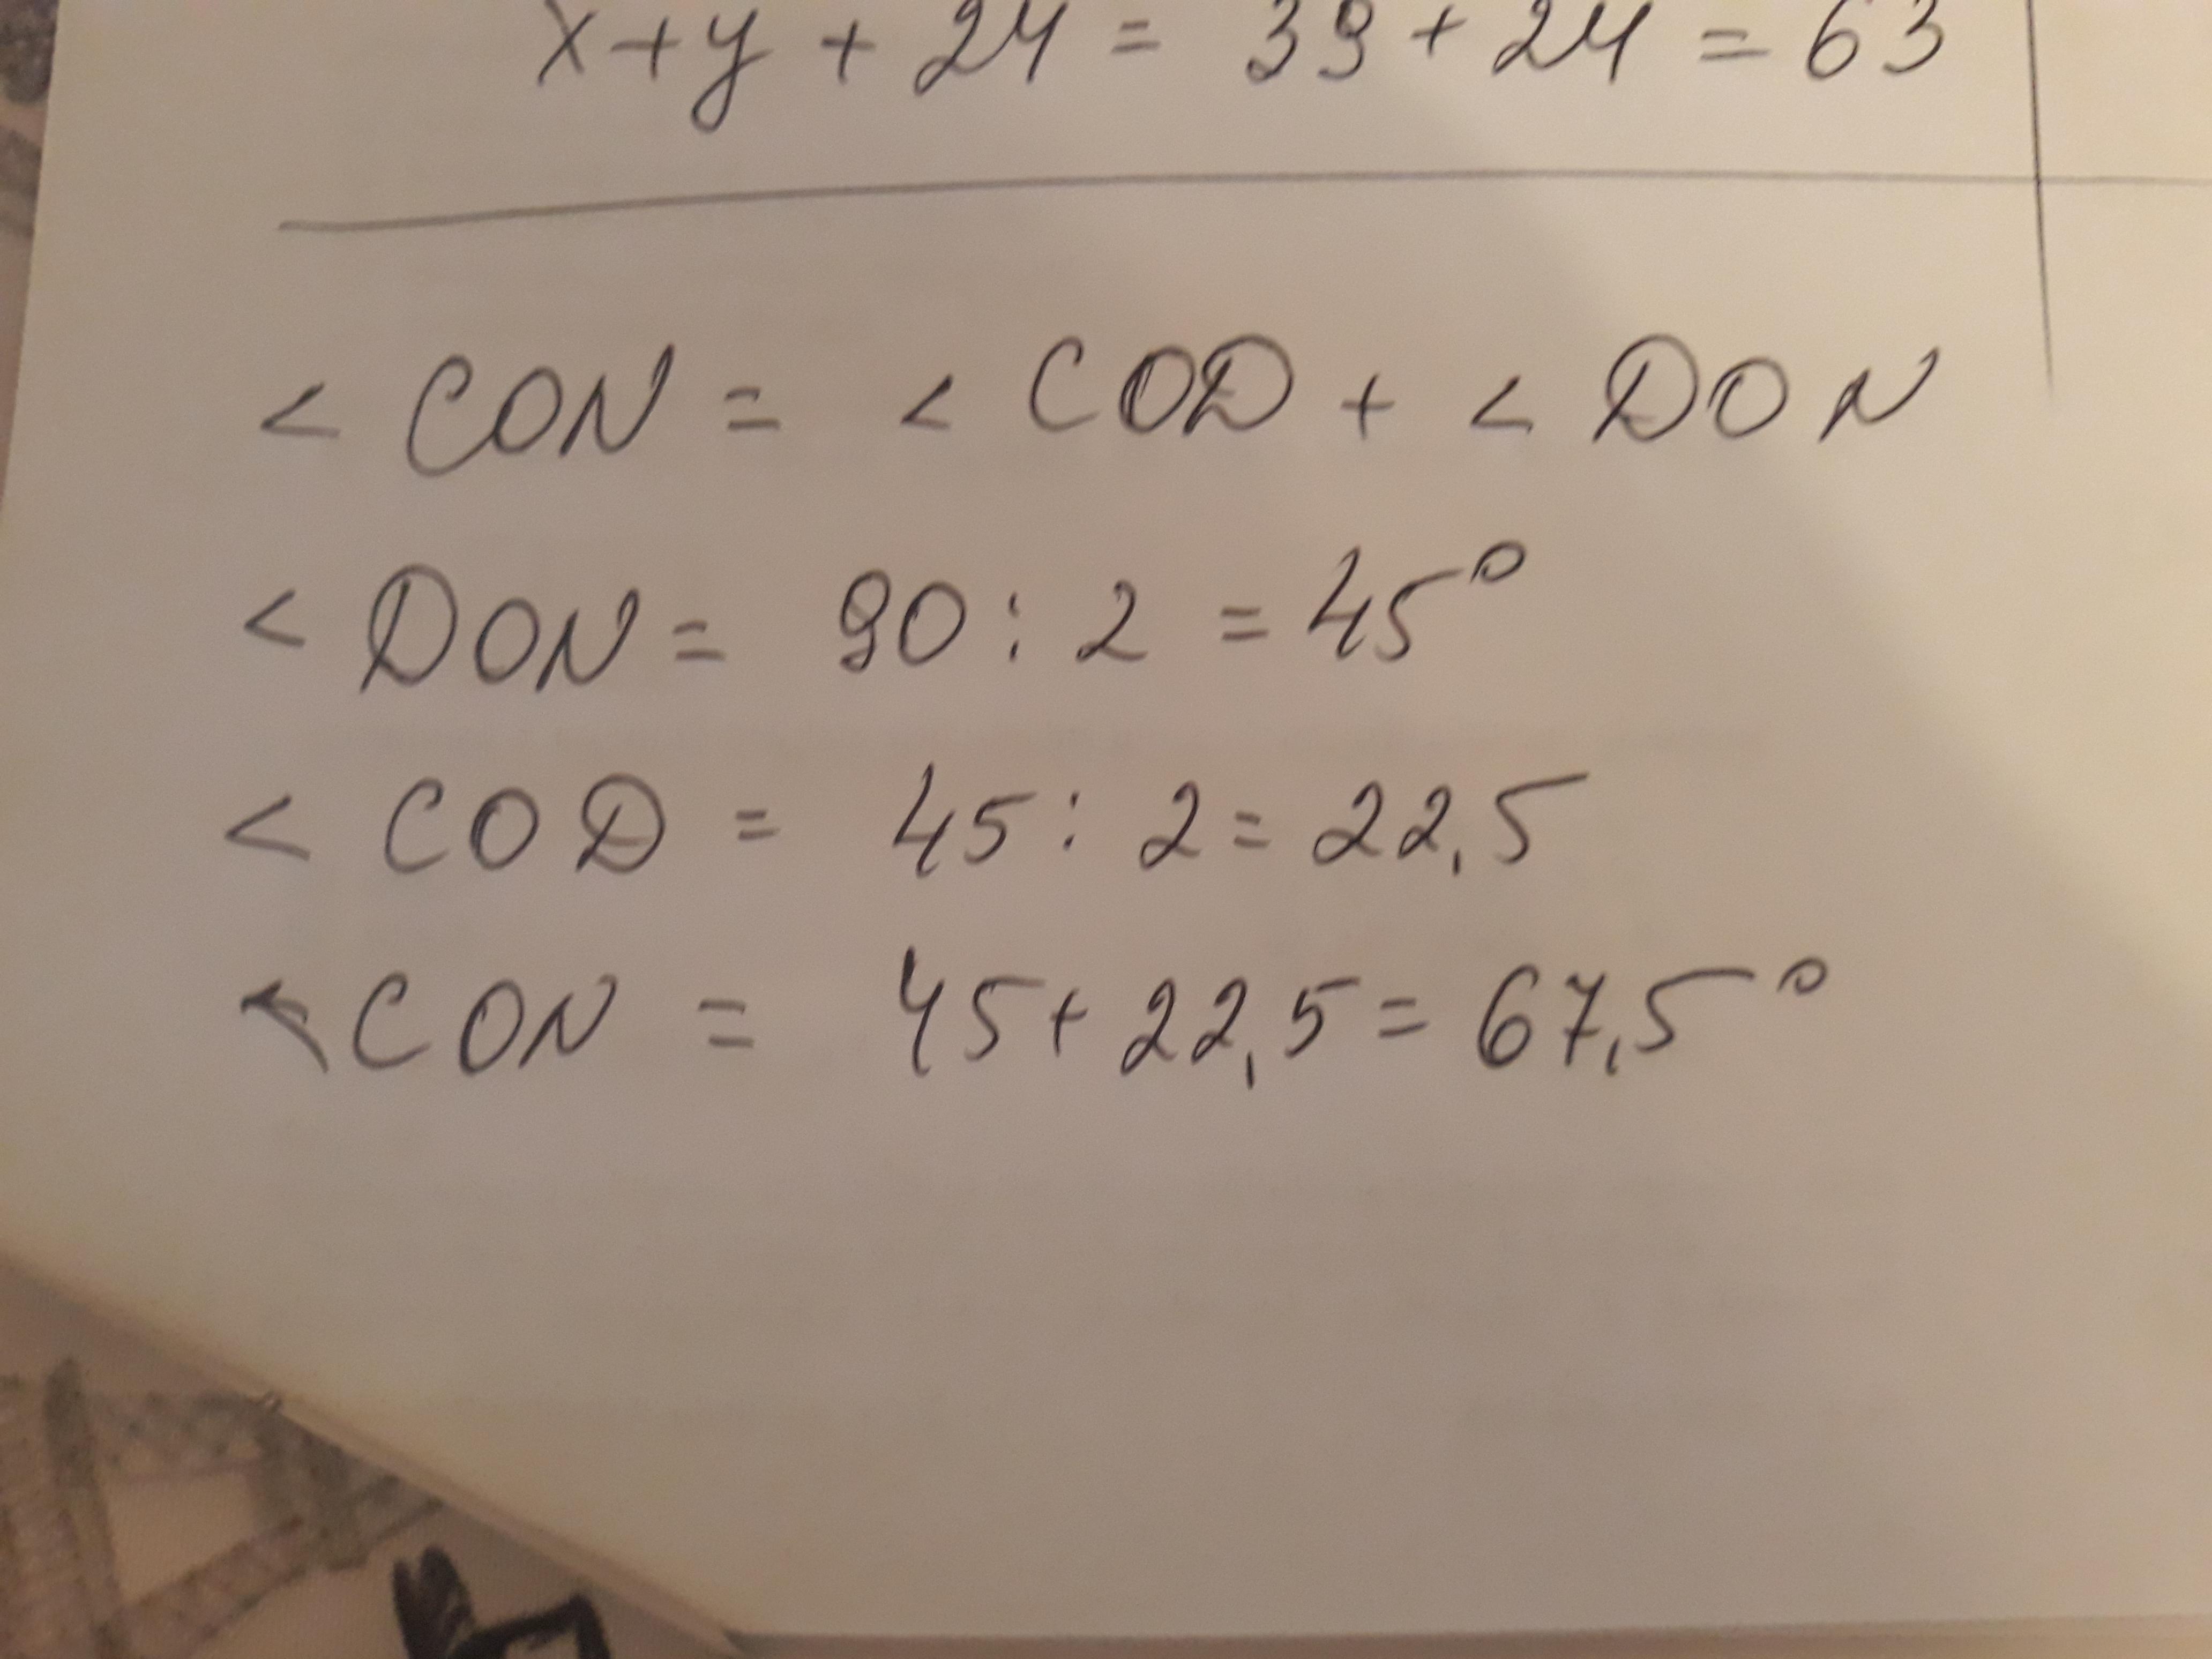 x+y + 24 = 39 + 24 = 63
< CON = < COD + < DON
< DON = 90 : 2 = 45°
< COD = 45 : 2 = 22,5
< CON = 45 + 22,5 = 67,5°